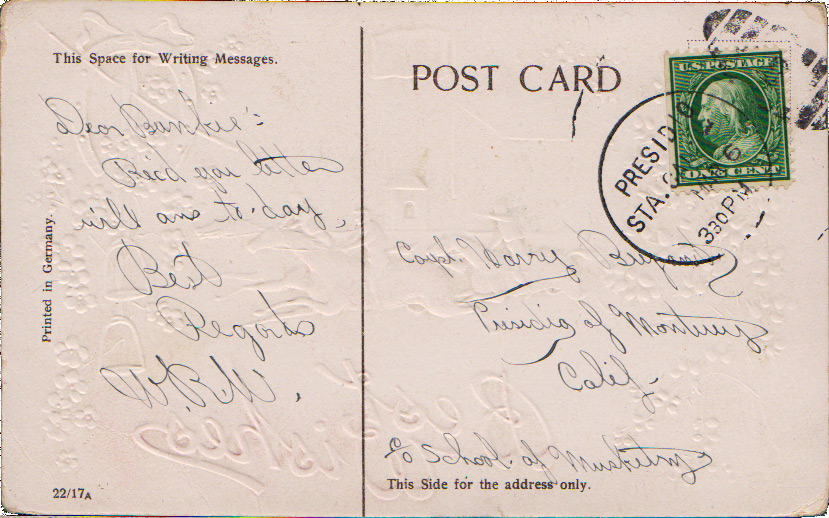 This Space for Writing Messages.
Dear Bunkie:
Rec'd you letter
will ans to-day.
Best
Regards
W.R.W.
Printed in Germany.
22/17A
POST CARD
U.S. POSTAGE
ONE CENT
PRESIDIO
STA.
330 PM
Capt. Harry
Presidio of Monterey
Calif.
c/o School of Musketry
This Side for the address only.
Best
Wishes